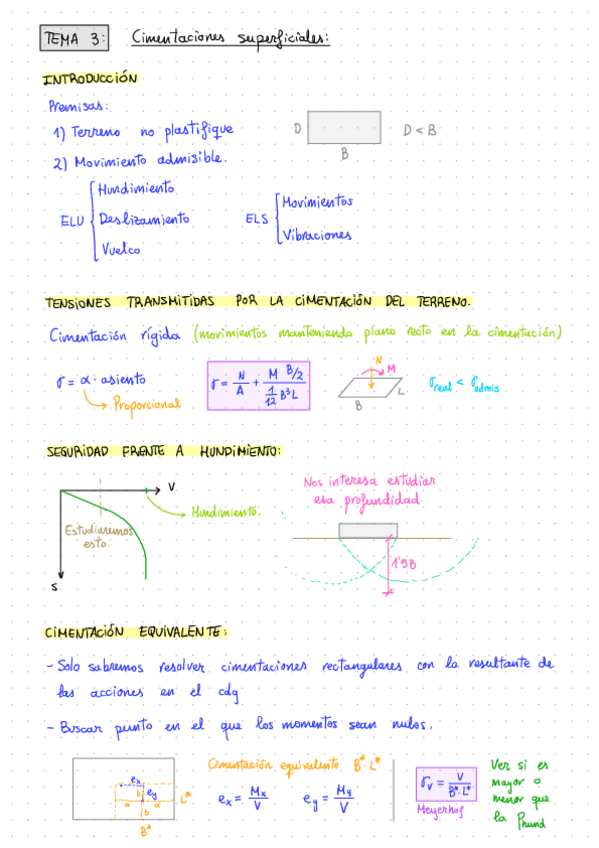 TEMA 3: Cimentaciones superficiales:
INTRODUCCIÓN
Premisas:
1) Terreno no plastifique
2) Movimiento admisible.
D
B
D < B
ELU
Hundimiento
Deslizamiento
Vuelco
ELS
Movimientos
Vibraciones
TENSIONES TRANSMITIDAS POR LA CIMENTACIÓN DEL TERRENO.
Cimentación rígida (movimientos manteniendo plano recto en la cimentación)
σ = α · asiento
Proporcional
σ = N/A + M B/2 / 1/12 B³L
N
M
L
B
σreal < σadmis
SEGURIDAD FRENTE A HUNDIMIENTO:
V
Hundimiento.
Estudiaremos
esto.
S
Nos interesa estudiar
esa profundidad.
1'5B
CIMENTACIÓN EQUIVALENTE:
- Solo sabremos resolver cimentaciones rectangulares con la resultante de
las acciones en el cdg
- Buscar punto en el que los momentos sean nulos.
ex
ey
b
a
a
b
L*
B*
Cimentación equivalente B* · L*
ex = Mx/V
ey = My/V
σv = V/B*·L*
Meyerhof
Ver si es
mayor o
menor que
la Phund